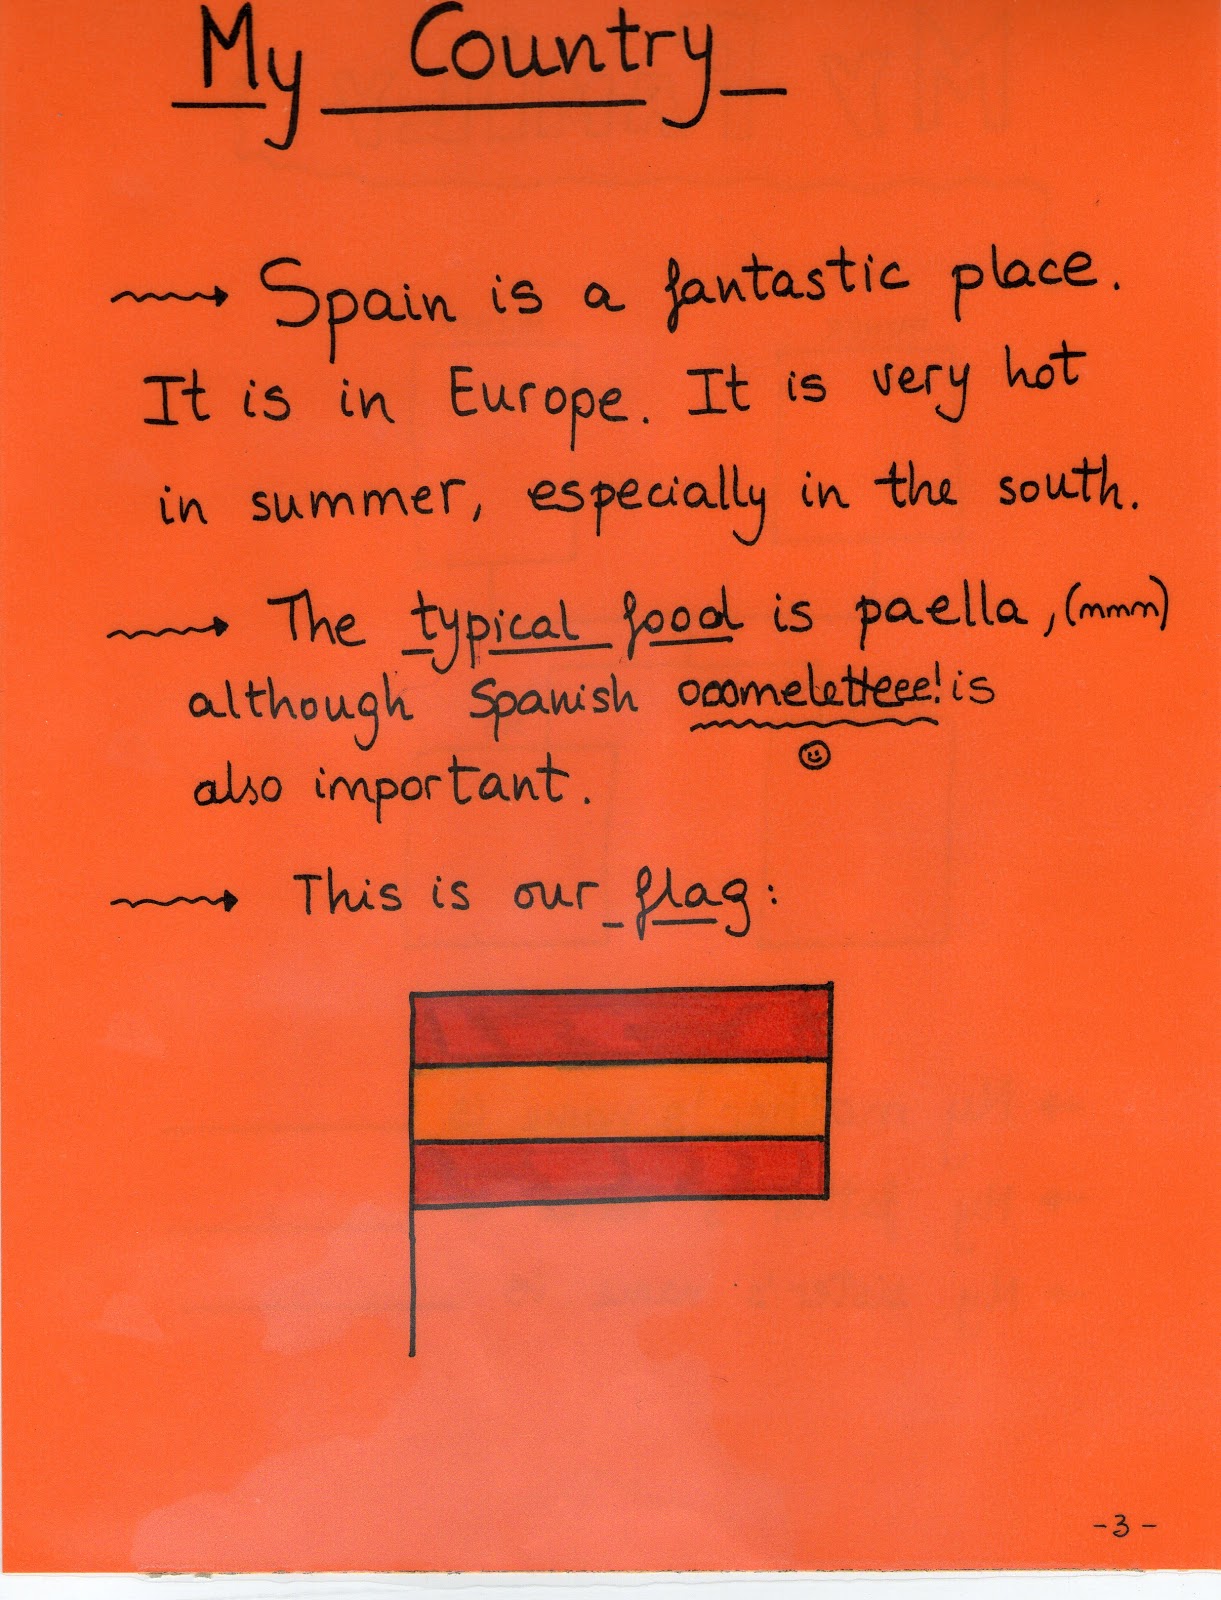 My Country
Spain is a fantastic place.
It is in Europe. It is very hot
in summer, especially in the south.
The typical food is paella, (mmm)
although Spanish ooomeletteee! is
also important.
This is our flag:
-3-